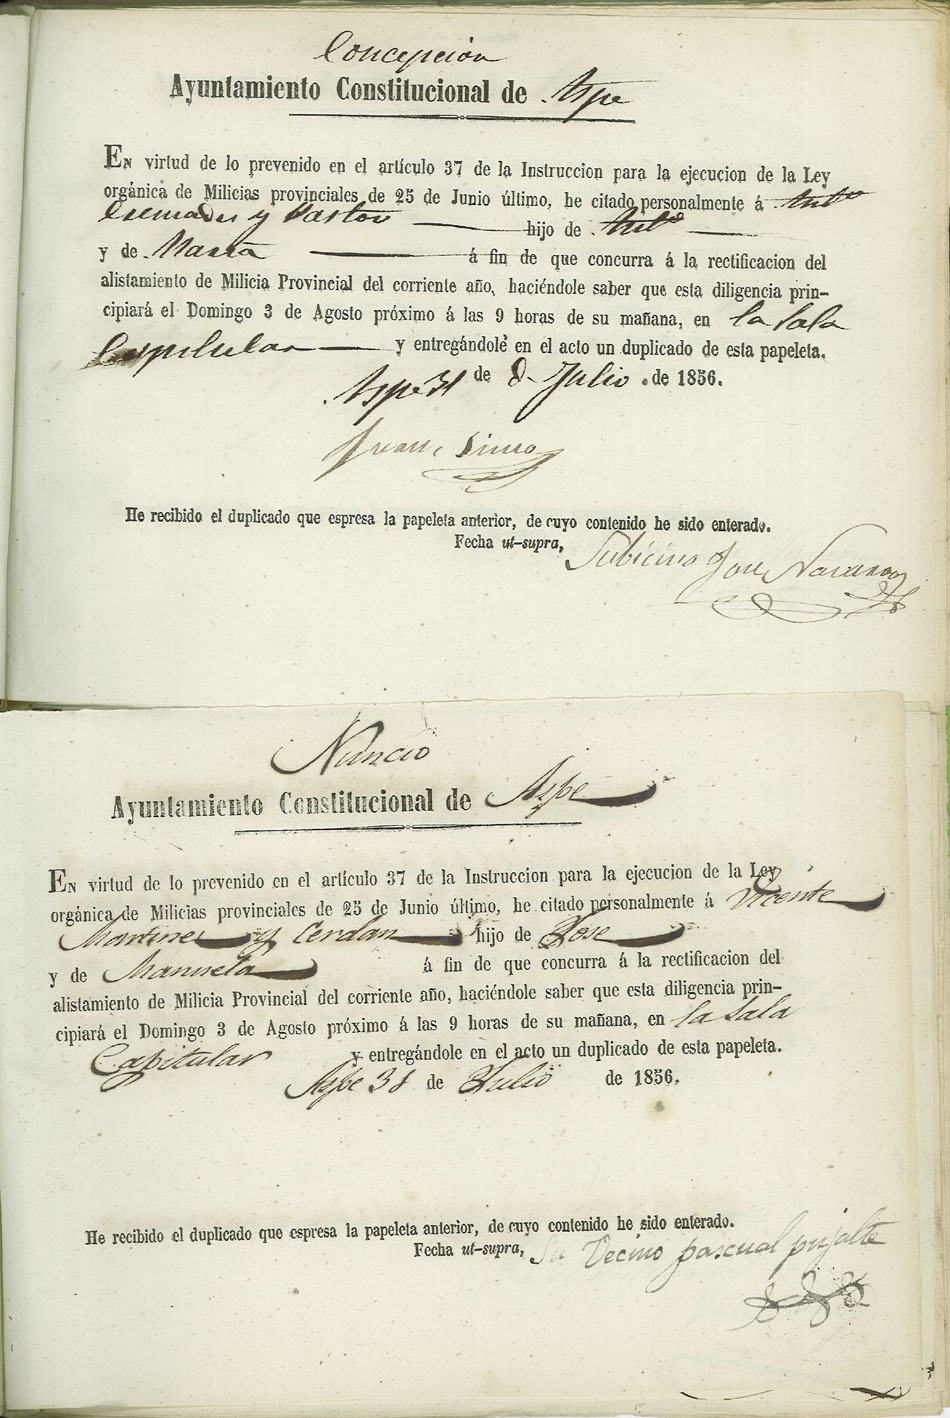 Concepcion
Ayuntamiento Constitucional de Aspe
En virtud de lo prevenido en el artículo 37 de la Instruccion para la ejecucion de la Ley
orgánica de Milicias provinciales de 25 de Junio último, he citado personalmente á Antº
Cremades y Pastor hijo de Antº
y de Maria á fin de que concurra á la rectificacion del
alistamiento de Milicia Provincial del corriente año, haciéndole saber que esta diligencia prin-
cipiará el Domingo 3 de Agosto próximo á las 9 horas de su mañana, en la Sala
Capitular y entregándole en el acto un duplicado de esta papeleta.
Aspe 31 de Julio de 1856.
Juan Simo
He recibido el duplicado que espresa la papeleta anterior, de cuyo contenido he sido enterado.
Fecha ut-supra, Su bicino Jose Navarro
Nuncio
Ayuntamiento Constitucional de Aspe
En virtud de lo prevenido en el artículo 37 de la Instruccion para la ejecucion de la Ley
orgánica de Milicias provinciales de 25 de Junio último, he citado personalmente á Vicente
Martinez y Cerdan hijo de Jose
y de Manuela á fin de que concurra á la rectificacion del
alistamiento de Milicia Provincial del corriente año, haciéndole saber que esta diligencia prin-
cipiará el Domingo 3 de Agosto próximo á las 9 horas de su mañana, en la Sala
Capitular y entregándole en el acto un duplicado de esta papeleta.
Aspe 31 de Julio de 1856.
He recibido el duplicado que espresa la papeleta anterior, de cuyo contenido he sido enterado.
Fecha ut-supra, Su Vecino pascual pujalte